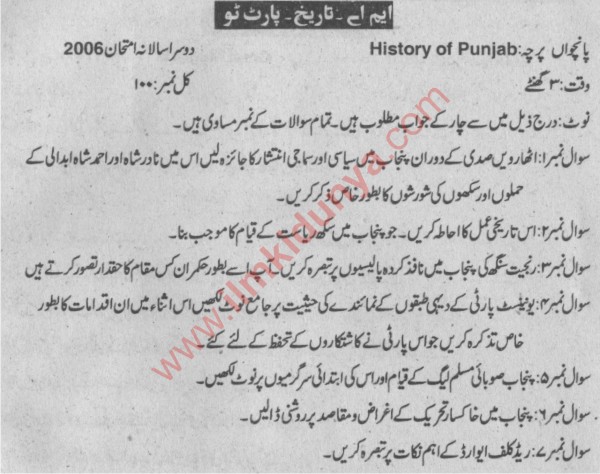 ایم اے ۔ تاریخ ۔ پارٹ ٹو
پانچواں پرچہ: History of Punjab دوسرا سالانہ امتحان 2006
وقت: ۳ گھنٹے کل نمبر: ۱۰۰
نوٹ: درج ذیل میں سے چار کے جواب مطلوب ہیں۔ تمام سوالات کے نمبر مساوی ہیں۔
سوال نمبر۱: اٹھارویں صدی کے دوران پنجاب میں سیاسی اور سماجی انتشار کا جائزہ لیں اس میں نادر شاہ اور احمد شاہ ابدالی کے
حملوں اور سکھوں کی شورشوں کا بطور خاص ذکر کریں۔
سوال نمبر۲: اس تاریخی عمل کا احاطہ کریں۔ جو پنجاب میں سکھ ریاست کے قیام کا موجب بنا۔
سوال نمبر۳: رنجیت سنگھ کی پنجاب میں نافذ کردہ پالیسیوں پر تبصرہ کریں۔ آپ اسے بطور حکمران کس مقام کا حقدار تصور کرتے ہیں
سوال نمبر۴: یونینسٹ پارٹی کے دیہی طبقوں کے نمائندے کی حیثیت پر جامع نوٹ لکھیں اس اثناء میں ان اقدامات کا بطور
خاص تذکرہ کریں جو اس پارٹی نے کاشتکاروں کے تحفظ کے لئے کئے۔
سوال نمبر۵: پنجاب صوبائی مسلم لیگ کے قیام اور اس کی ابتدائی سرگرمیوں پر نوٹ لکھیں۔
سوال نمبر۶: پنجاب میں خاکسار تحریک کے اغراض و مقاصد پر روشنی ڈالیں۔
سوال نمبر۷: ریڈ کلف ایوارڈ کے اہم نکات پر تبصرہ کریں۔
www.ilmkidunya.com